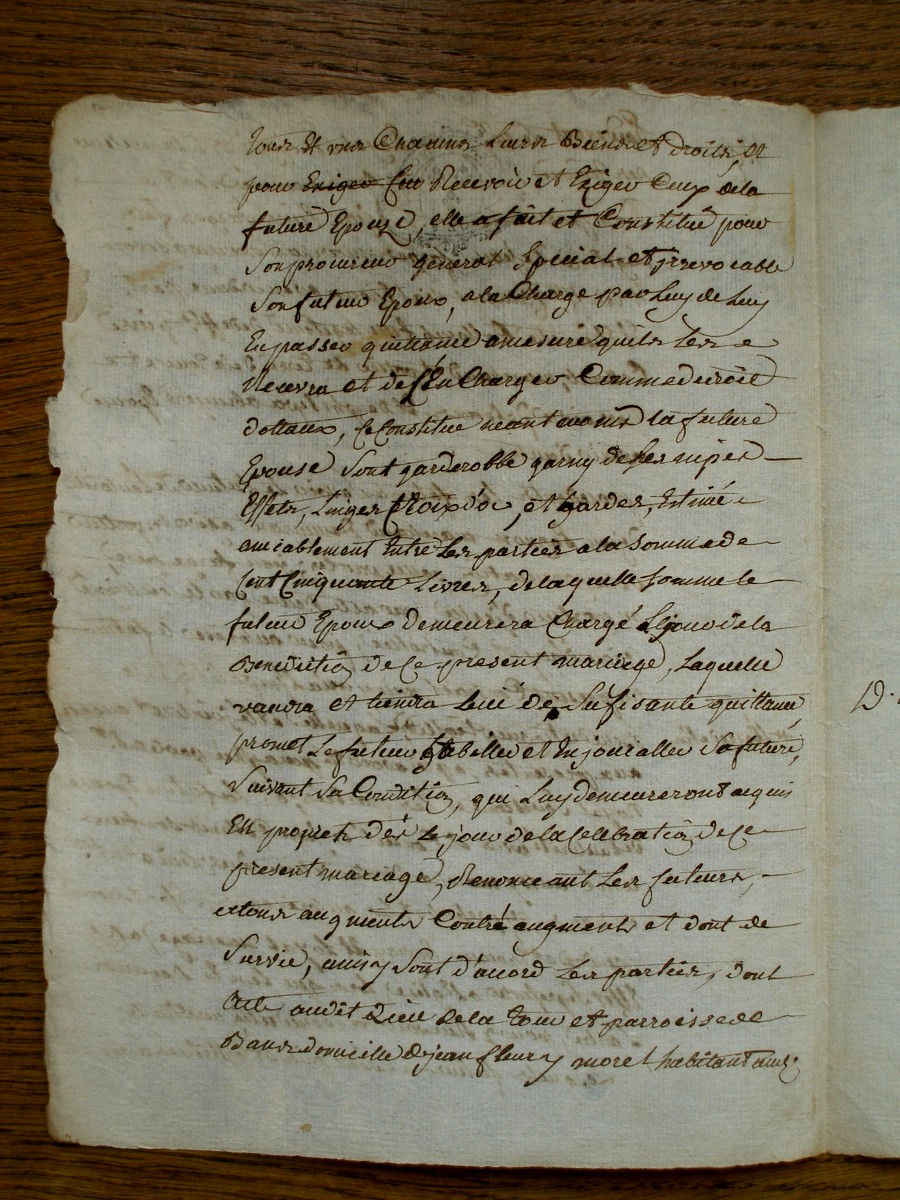 tous et uns Chacuns Leurs Biens et droits, et
pour Exiger Recevoir et Exiger Ceux de la
future Epouze, elle a fait et Constitué pour
Son procureur général Special et jrrevocable
Son futeur Epoux, a la Charge par Luy de Luy
En passer quittance a mesure quils Les
Recevra et de Charger Comme de droit
dottaux, Ce Constitue neant moins la future
Epouse Sont garderobbe garny de Ses nipes
Effets, Linges Croix d'or, et hardes, Estimé
amiablement Entre Les parties a la Somme de
Cent Cinquante Livres, de laquelle Somme le
futeur Epoux demeurera Chargé Le jour de la
Benediction de Ce present mariage, Laquelle
vaudra et tiendra Lieu de Sufisante quittance,
promet Le futeur habiller et Enjoualler Sa future,
Suivant Sa Condition, qui Luy demeureront acquis
En propriete dés Le jour de la Celebration de Ce
present mariage, Renonceant Les futeurs,
a tous augments Contré augments et dont de
Survie, ainsy Sont d'acord Les parties, dont
acte audit Lieu de la tour et parroisse de
Bans domicille de jean fleury moret habitant
D.